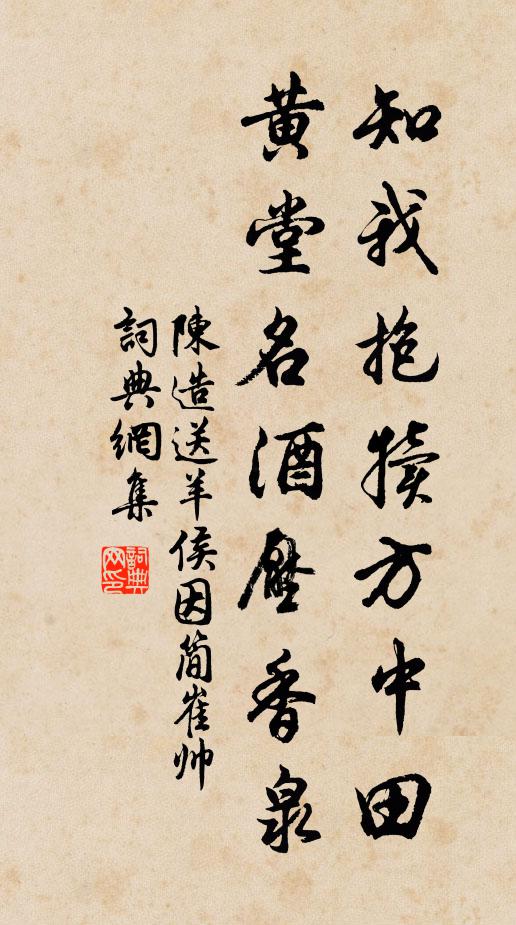 知我抱犢方中田
黃堂名酒壓香泉
陳造送羊侯因簡崔帅
詞典網集
詞典网印